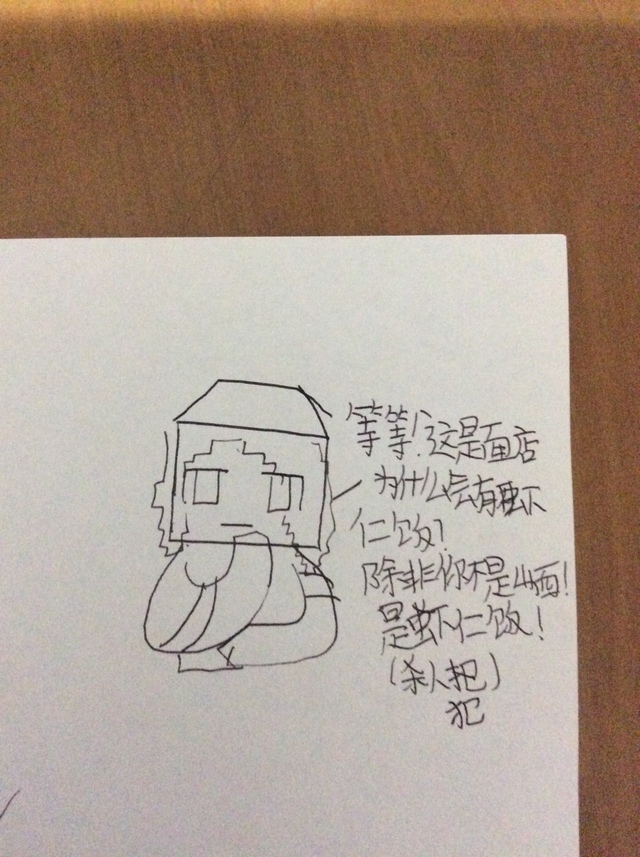 等等!这是面店
为什么会有虾
仁饭?
除非你不是面!
是虾仁饭!
(杀人把)
犯